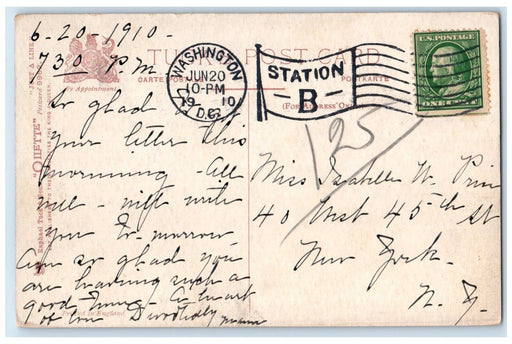 6-20-1910-
7 30 P.M.
TUCK'S POST CARD
CARTE POSTALE POSTKARTE
By Appointment
(For Address Only)
WASHINGTON
JUN 20
10-PM
1910
D.C.
STATION
B
U.S. POSTAGE
ONE CENT
"OILETTE"
Raphael Tuck
Printed in England
So glad to get
your letter this
morning - All
well - will write
you to-morrow
Am so glad you
are having such a
good time.
of love Devotedly Mama
25
Miss Isabelle W.
40 West 45th St
New York.
N. Y.